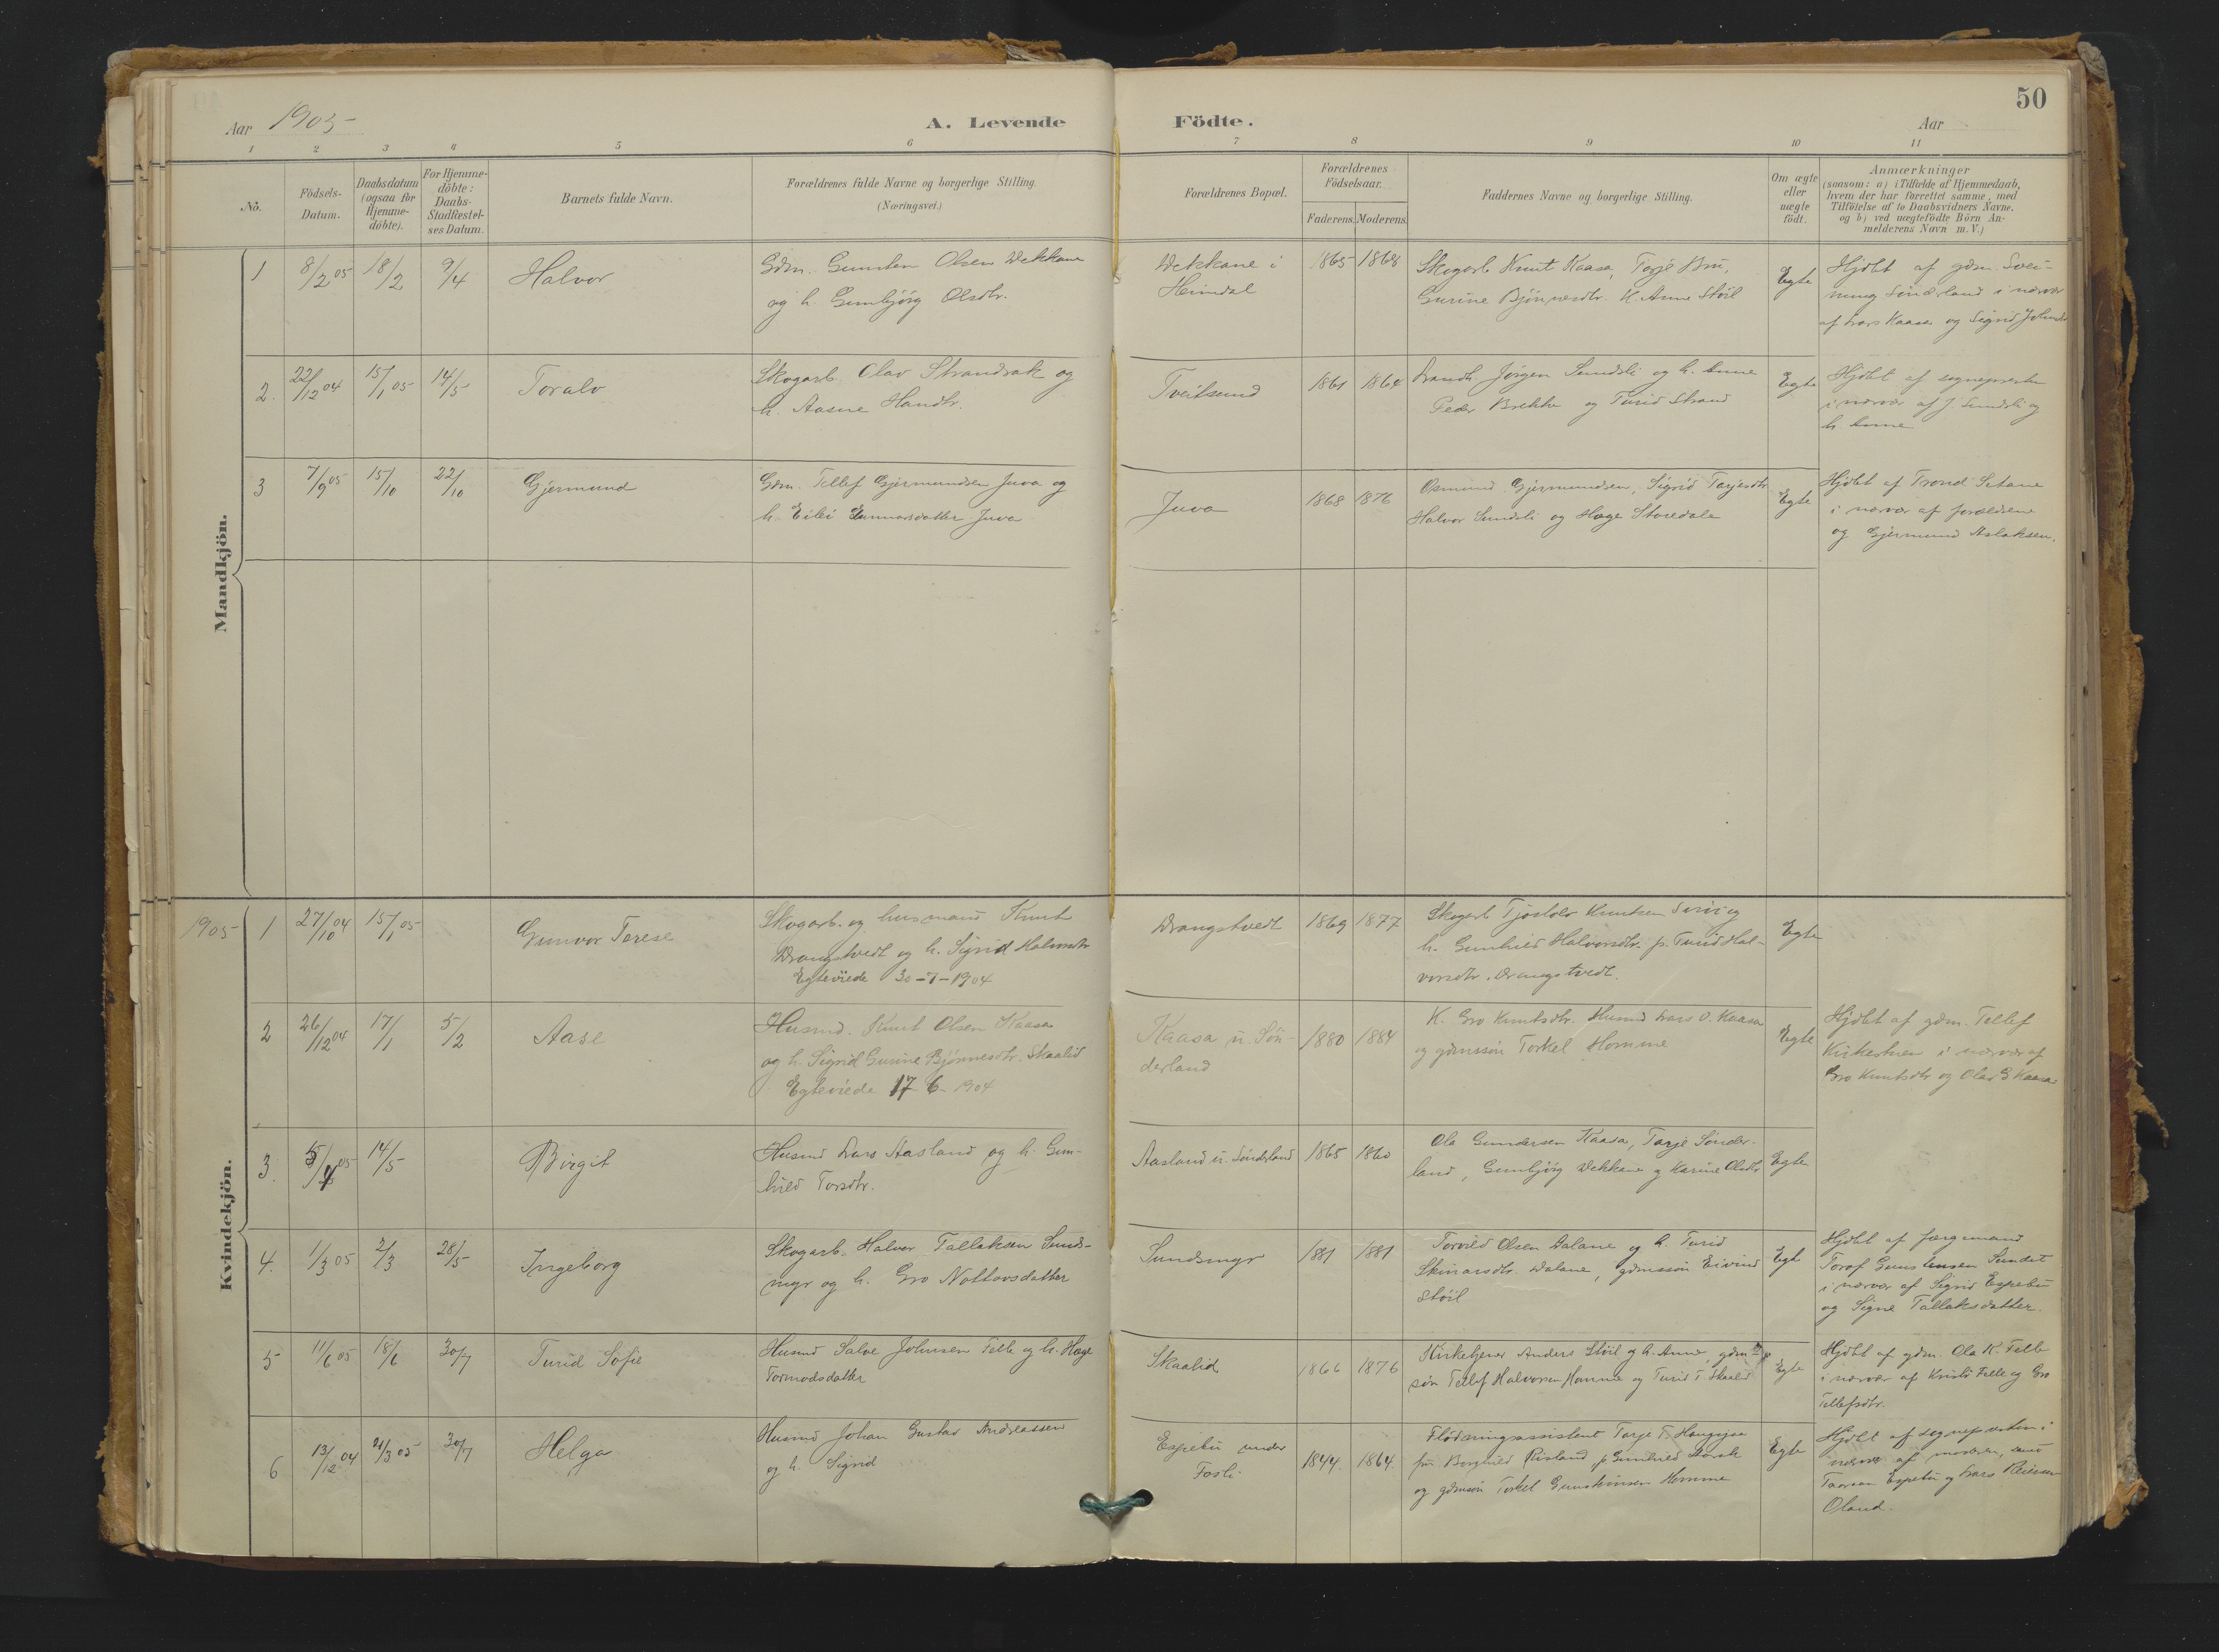 50
Aar 1905
A. Levende Födte.
Aar
1 2 3 4 5 6 7 8 9 10 11
No.
Födsels-
Datum.
Daabsdatum
(ogsaa for
Hjemme-
döbte).
For Hjemme-
döbte:
Daabs-
Stadfæstel-
ses Datum.
Barnets fulde Navn.
Forældrenes fulde Navne og borgerlige Stilling.
(Næringsvei.)
Forældrenes Bopæl.
Forældrenes
Födselsaar.
Faderens. Moderens.
Faddernes Navne og borgerlige Stilling.
Om ægte
eller
uægte
födt.
Anmærkninger
(saasom: a) i Tilfælde af Hjemmedaab,
hvem der har forrettet samme, med
Tilföielse af to Daabsvidners Navne.
og b) ved uægtefödte Börn An-
melderens Navn m. V.)
Mandkjön.
1 8/2 05 18/2 9/4 Halvor
Gdm. Olsen Vekkane
og h. Gunbjörg Olsdtr.
Vekkane i
Heimdal
1865 1868
Skogarb Knut Kaasa, Torje Bru,
Gurine Bjönnesdtr. K. Anne Stöil
Egte
Hjdbt af gdm. Svei-
nung Sönderland i nærvær
af Lars Kaasa og Sigrid
2. 22/12 04 15/1 05 14/5 Toralv
Skogarb. Olav Strandrak og
h. Aasne
Tveitsund
1861 1864
Jörgen Sundsli og h. Anne
Peder Brekke og Turid Strand
Egte
Hjdbt af sognepresten
i nærvær af J Sundsli og
h. Anne
3 7/9 05 15/10 22/10 Gjermund
Gdm. Tellef Gjermundsen Juva og
h. Eilei Gunnarsdatter Juva
Juva
1868 1876
Osmund Gjermundsen, Sigrid Tarjesdtr
Halvor Sundsli og Hæge Storedale
Egte
Hjdbt af Trond Setane
i nærvær af forældrene
og Gjermund Aslaksen.
Kvindekjön.
1905 1 27/10 04 15/1 05 Gunvor Terese
Skogarb. og husmand Knut
Drangstvedt og h. Sigrid
Egteviede 30-7-1904
Drangstvedt
1869 1877
Skogarb Tjostolv Knutsen og
h. Gunhild Halvorsdtr. p. Turid Hal-
vorsdtr. Drangstvedt.
Egte
2 26/12 04 17/1 5/2 Aase
Husmd. Knut Olsen Kaasa
og h. Sigrid Gurine Bjönnesdtr. Skaalid
Egteviede 17-6-1904
Kaasa u. Sön-
derland
1880 1884
K. Gro Knutsdtr. Husmd Lars O. Kaasa
og gdmssön Torkel Homme
Egte
Hjdbt af gdm. Tellef
Kirkestuen i nærvær af
Gro Knutsdtr og Olav G Kaasa
3. 5/4 05 14/5 Birgit
Husmd Lars Aasland og h. Gun-
hild Torsdtr.
Aasland u. Sönderland
1865 1860
Ole Gundersen Kaasa, Tarje Sönder-
land, Gunbjörg Vekkane og Karine Olsdtr
Egte
4. 1/3 05 2/3 28/5 Ingeborg
Skogarb. Halvor Tallaksen Sunds-
myr og h. Gro Nottovsdatter
Sundsmyr
1881 1881
Torvild Olsen Dalane og h. Turid
Skinarsdtr. Dalane, gdmssön Eivind
Stöil
Egte
Hjdbt af færgemand
Torof Gunstensen Sundet
i nærvær af Sigrid Espebu
og Signe Tallaksdatter.
5 11/6 05 18/6 30/7 Turid Sofie
Husmd Salve Johnsen Felle og h. Hæge
Tormodsdatter
Skaalid
1866 1876
Kirketjener Anders Stöil og h. Anne, gdm-
sön Tellef Halvorsen Homme og Turid T. Skaalid
Egte
Hjdbt af gdm. Ola K. Felle
i nærvær af Kristi Felle og Gro
Tellefsdtr.
6 13/12 04 21/3 05 30/7 Helga
Husmd Johan Gustav Andreassen
og h. Sigrid
Espebu under
Fosli
1844. 1864.
Flödningsassistent Tarje T.
frk Borghild Risland, p. Gunhild
og gdmssön Torkel Gunsteinsen Homme
Egte
Hjdbt af sognepresten i
nærvær af moderen, samt
Espebu og Lars
Oland.